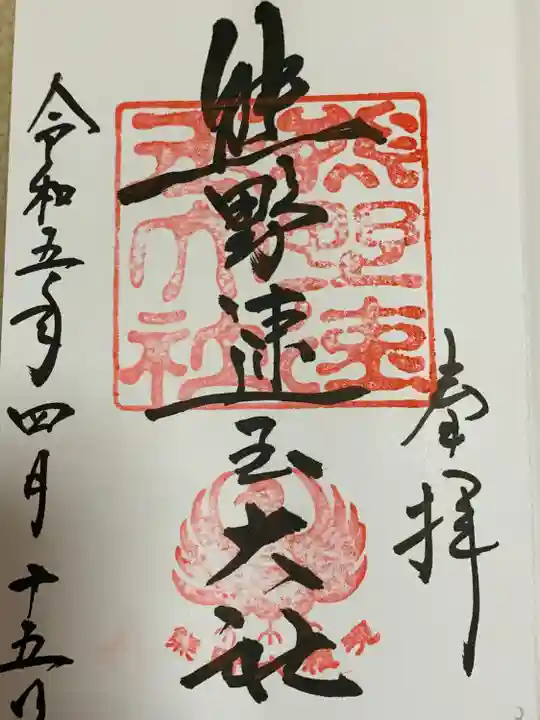 奉拝
熊野速玉大社
令和五年四月十五日
熊野速玉大社